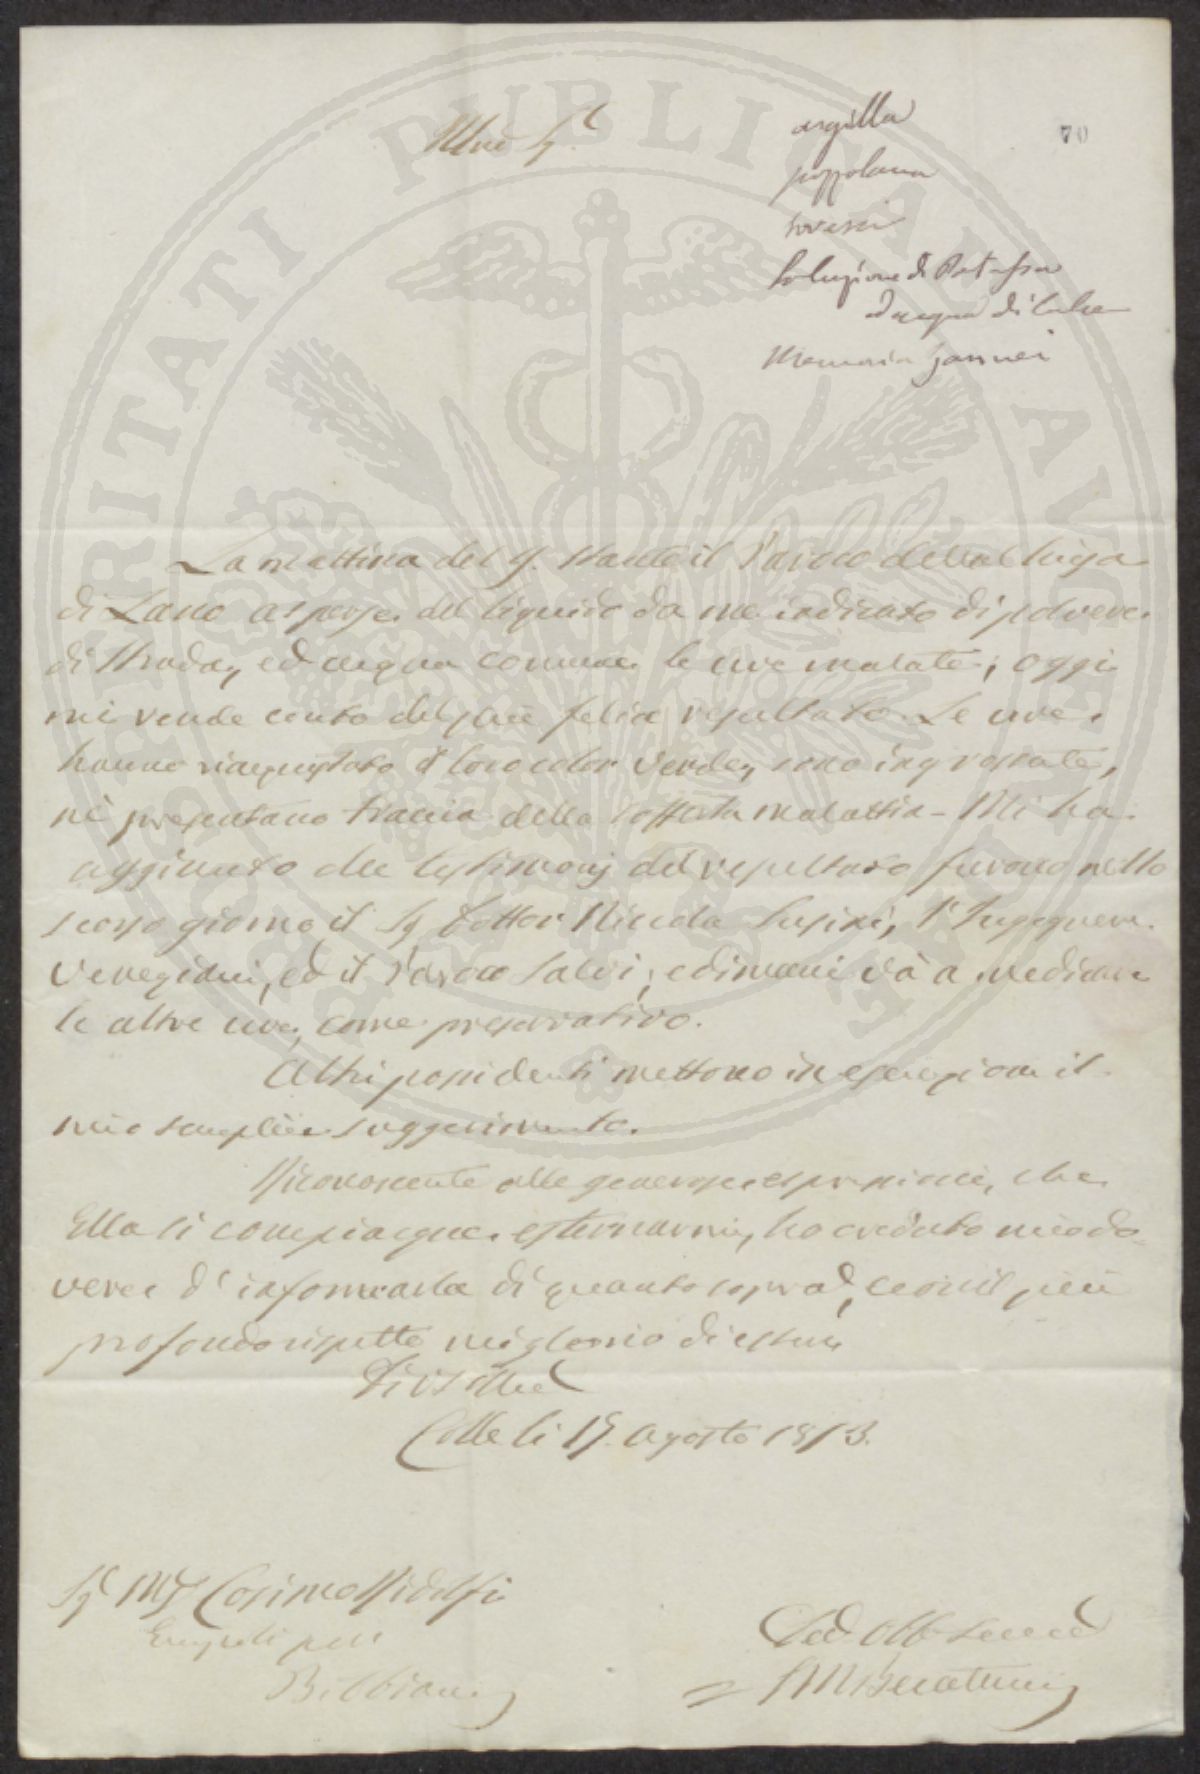 Illmo Sig.
argilla
pozzolana
sovesci
Soluzione di Potassa
ad acqua di Calce
Memoria Jannei
70
La mattina del 9. stante il Parroco della Chiesa
di Lano asperse del liquido da me indicato di polvere
di strada, ed acqua comune le uve malate; oggi
mi rende conto del più felice resultato. Le uve
hanno riacquistato il loro color verde, sono ingrossate,
nè presentano traccia della sofferta malattia - Mi ha
aggiunto che testimonj del resultato furono nello
scorso giorno il Sig Dottor Niccola Susini, l'Ingegnere
Veneziani, ed il Parroco Salvi; e dimani và a medicare
le altre uve, come preservativo.
Altri possidenti mettono in esecuzione il
mio semplice suggerimento.
Riconoscente alle generose espressioni, che
Ella si compiacque esternarmi, ho creduto mio do-
vere d'informarla di quanto sopra, e con il più
profondo rispetto mi glorio di essere
Di VS Illma
Colle li 19. Agosto 1853.
Sig. Mse Cosimo Ridolfi
Empoli per
Bibbiani
Dev. Obb. Serv.